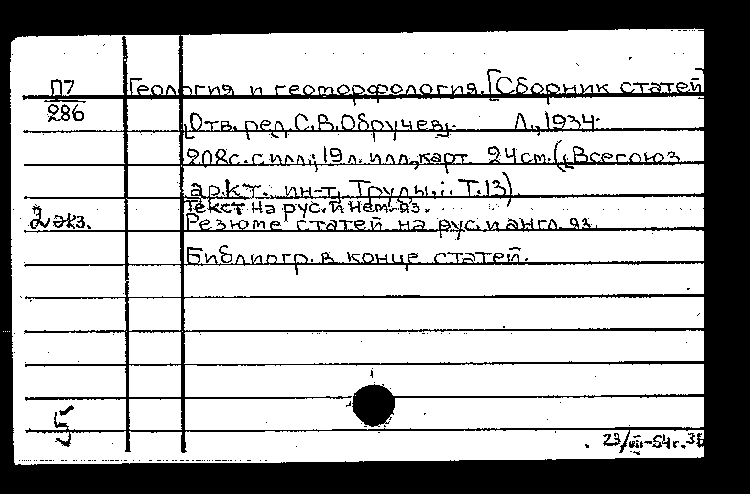 П7 Геология и геоморфология. [Сборник статей]
286
[Отв. ред. С. В. Обручев]. Л., 1934.
208с. с илл.; 19 л. илл., карт. 24 см. ([Всесоюз.
аркт. ин-т]. Труды.: Т. 13).
Текст на рус. и нем. яз.
2 экз. Резюме статей на рус. и англ. яз.
Библиогр. в конце статей.
5
23/VII-54г.